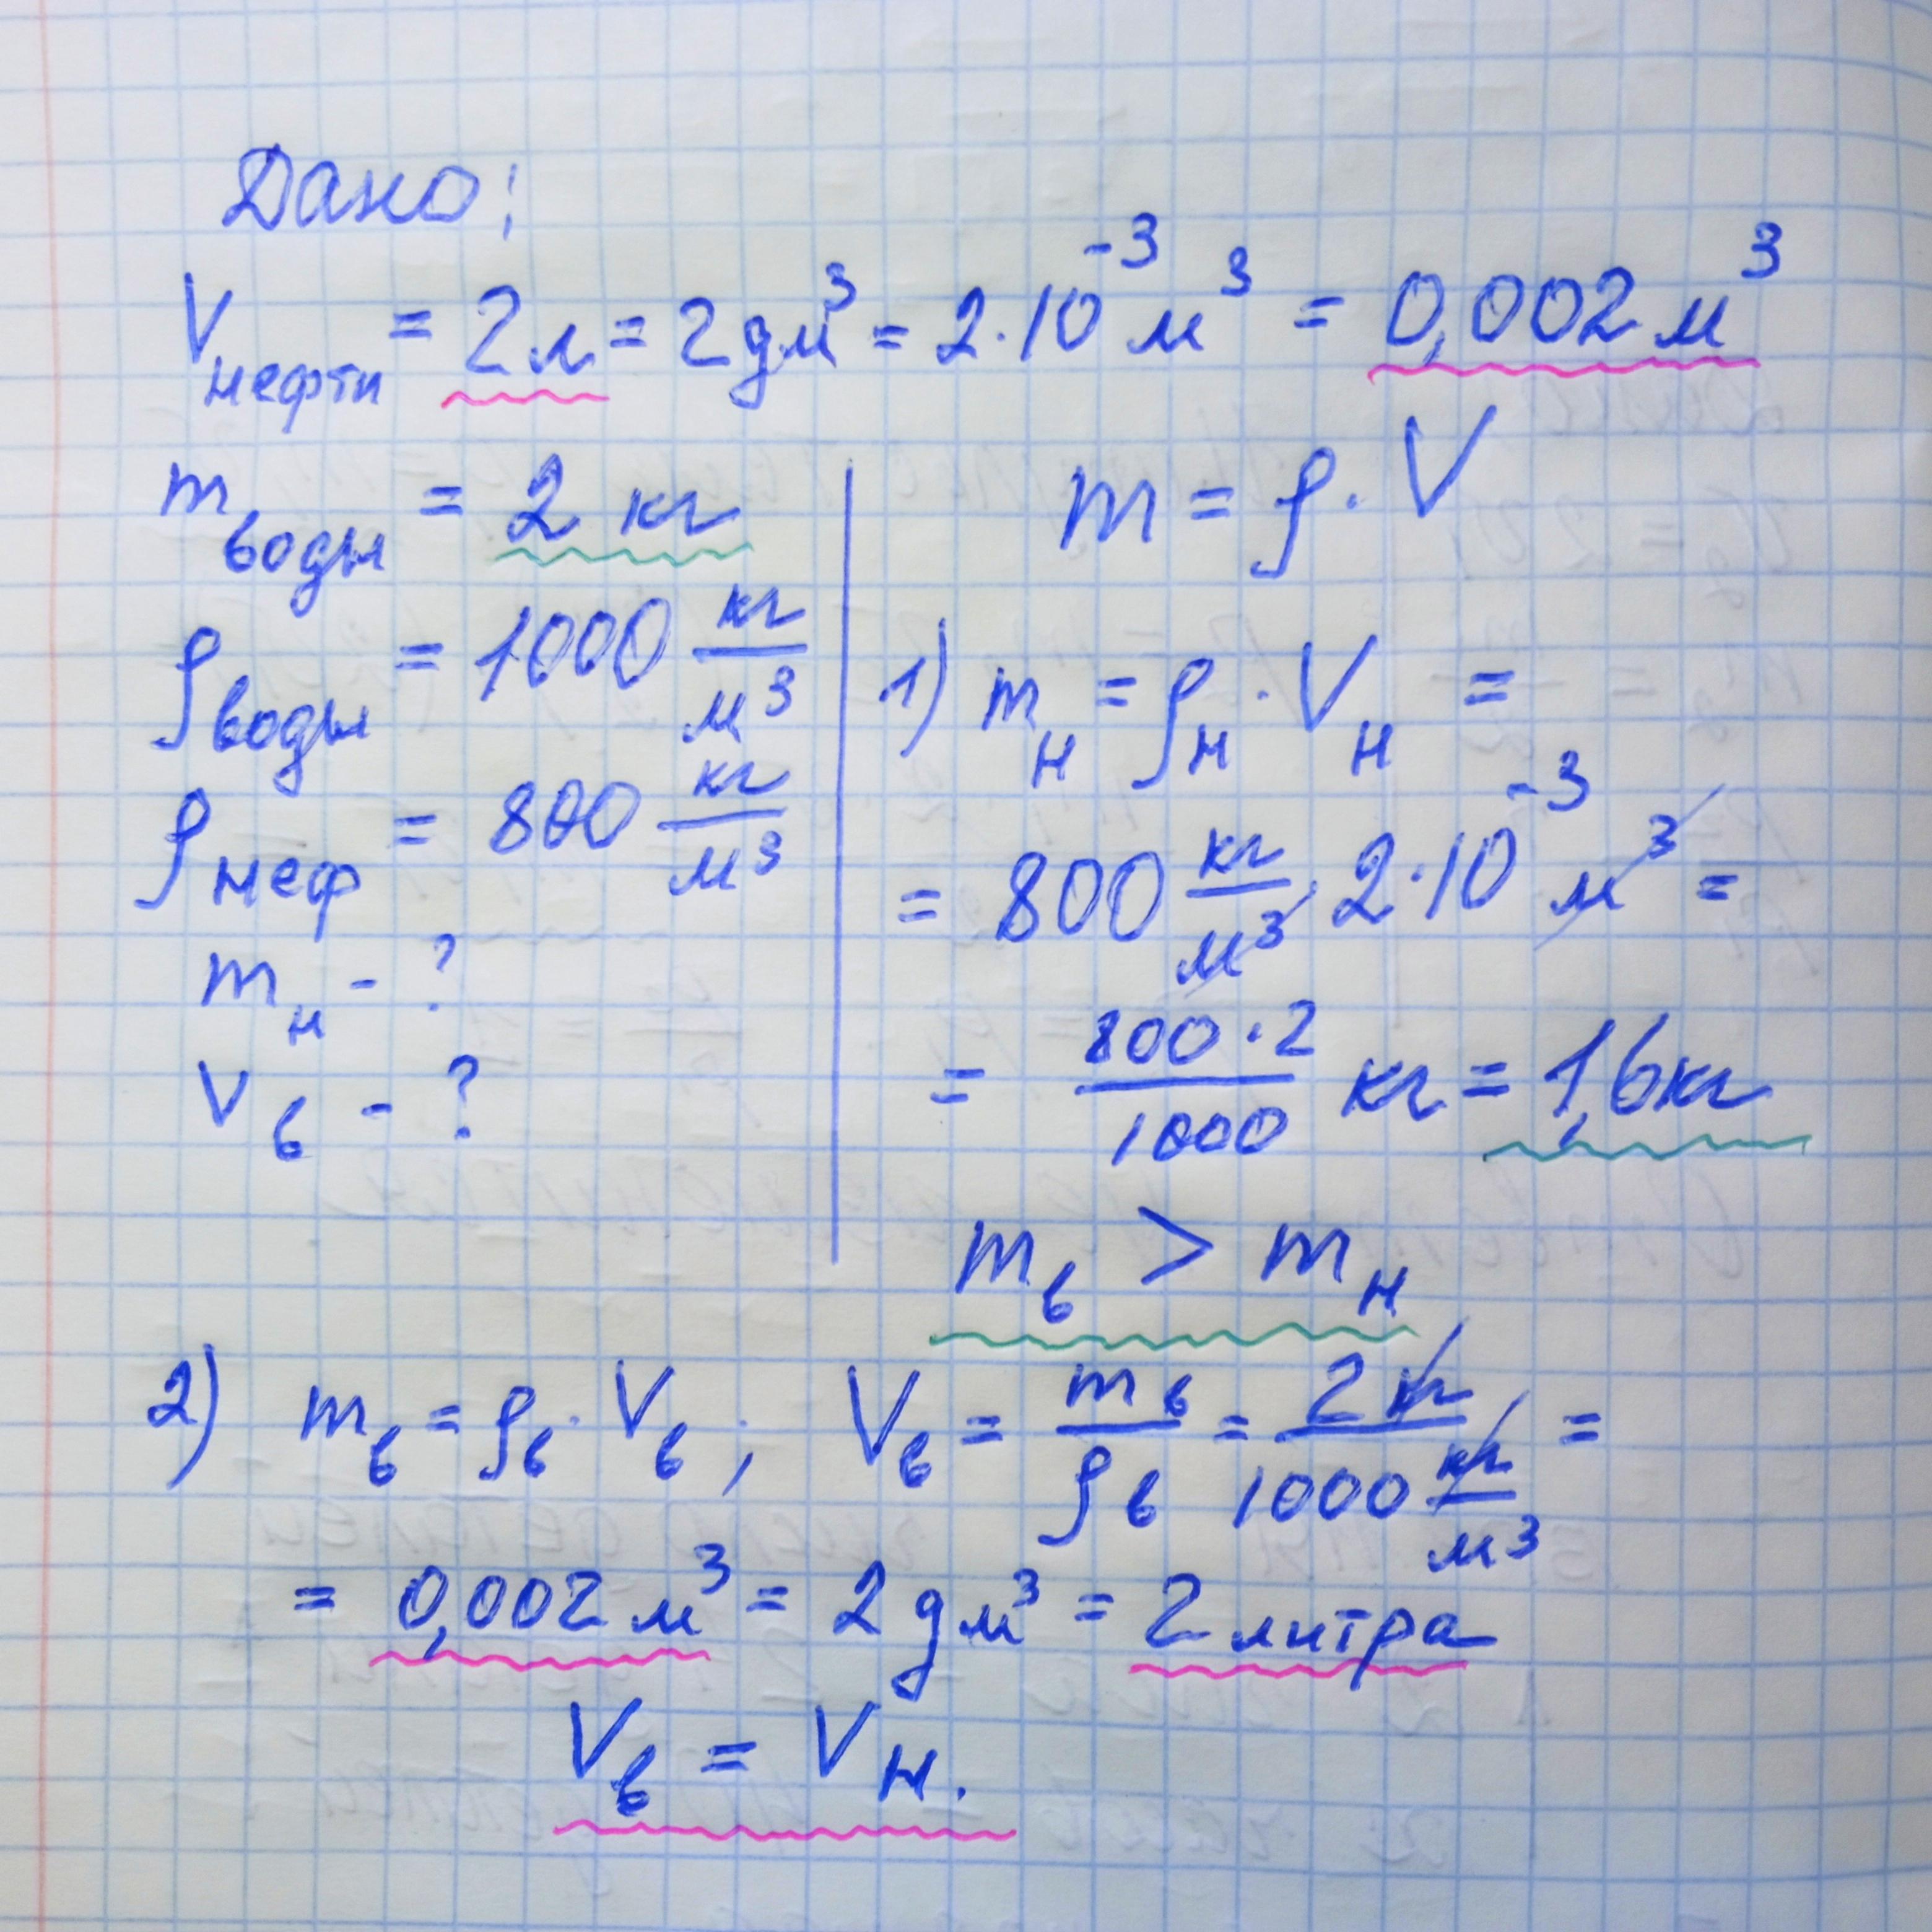 Дано:
V нефти = 2 л = 2 дм³ = 2·10⁻³ м³ = 0,002 м³
m воды = 2 кг
ρ воды = 1000 кг/м³
ρ неф = 800 кг/м³
m н - ?
V в - ?
m = ρ · V
1) m н = ρ н · V н =
= 800 кг/м³ · 2·10⁻³ м³ =
= 800·2/1000 кг = 1,6 кг
m в > m н
2) m в = ρ в · V в ; V в = m в/ρ в = 2 кг/1000 кг/м³ =
= 0,002 м³ = 2 дм³ = 2 литра
V в = V н.